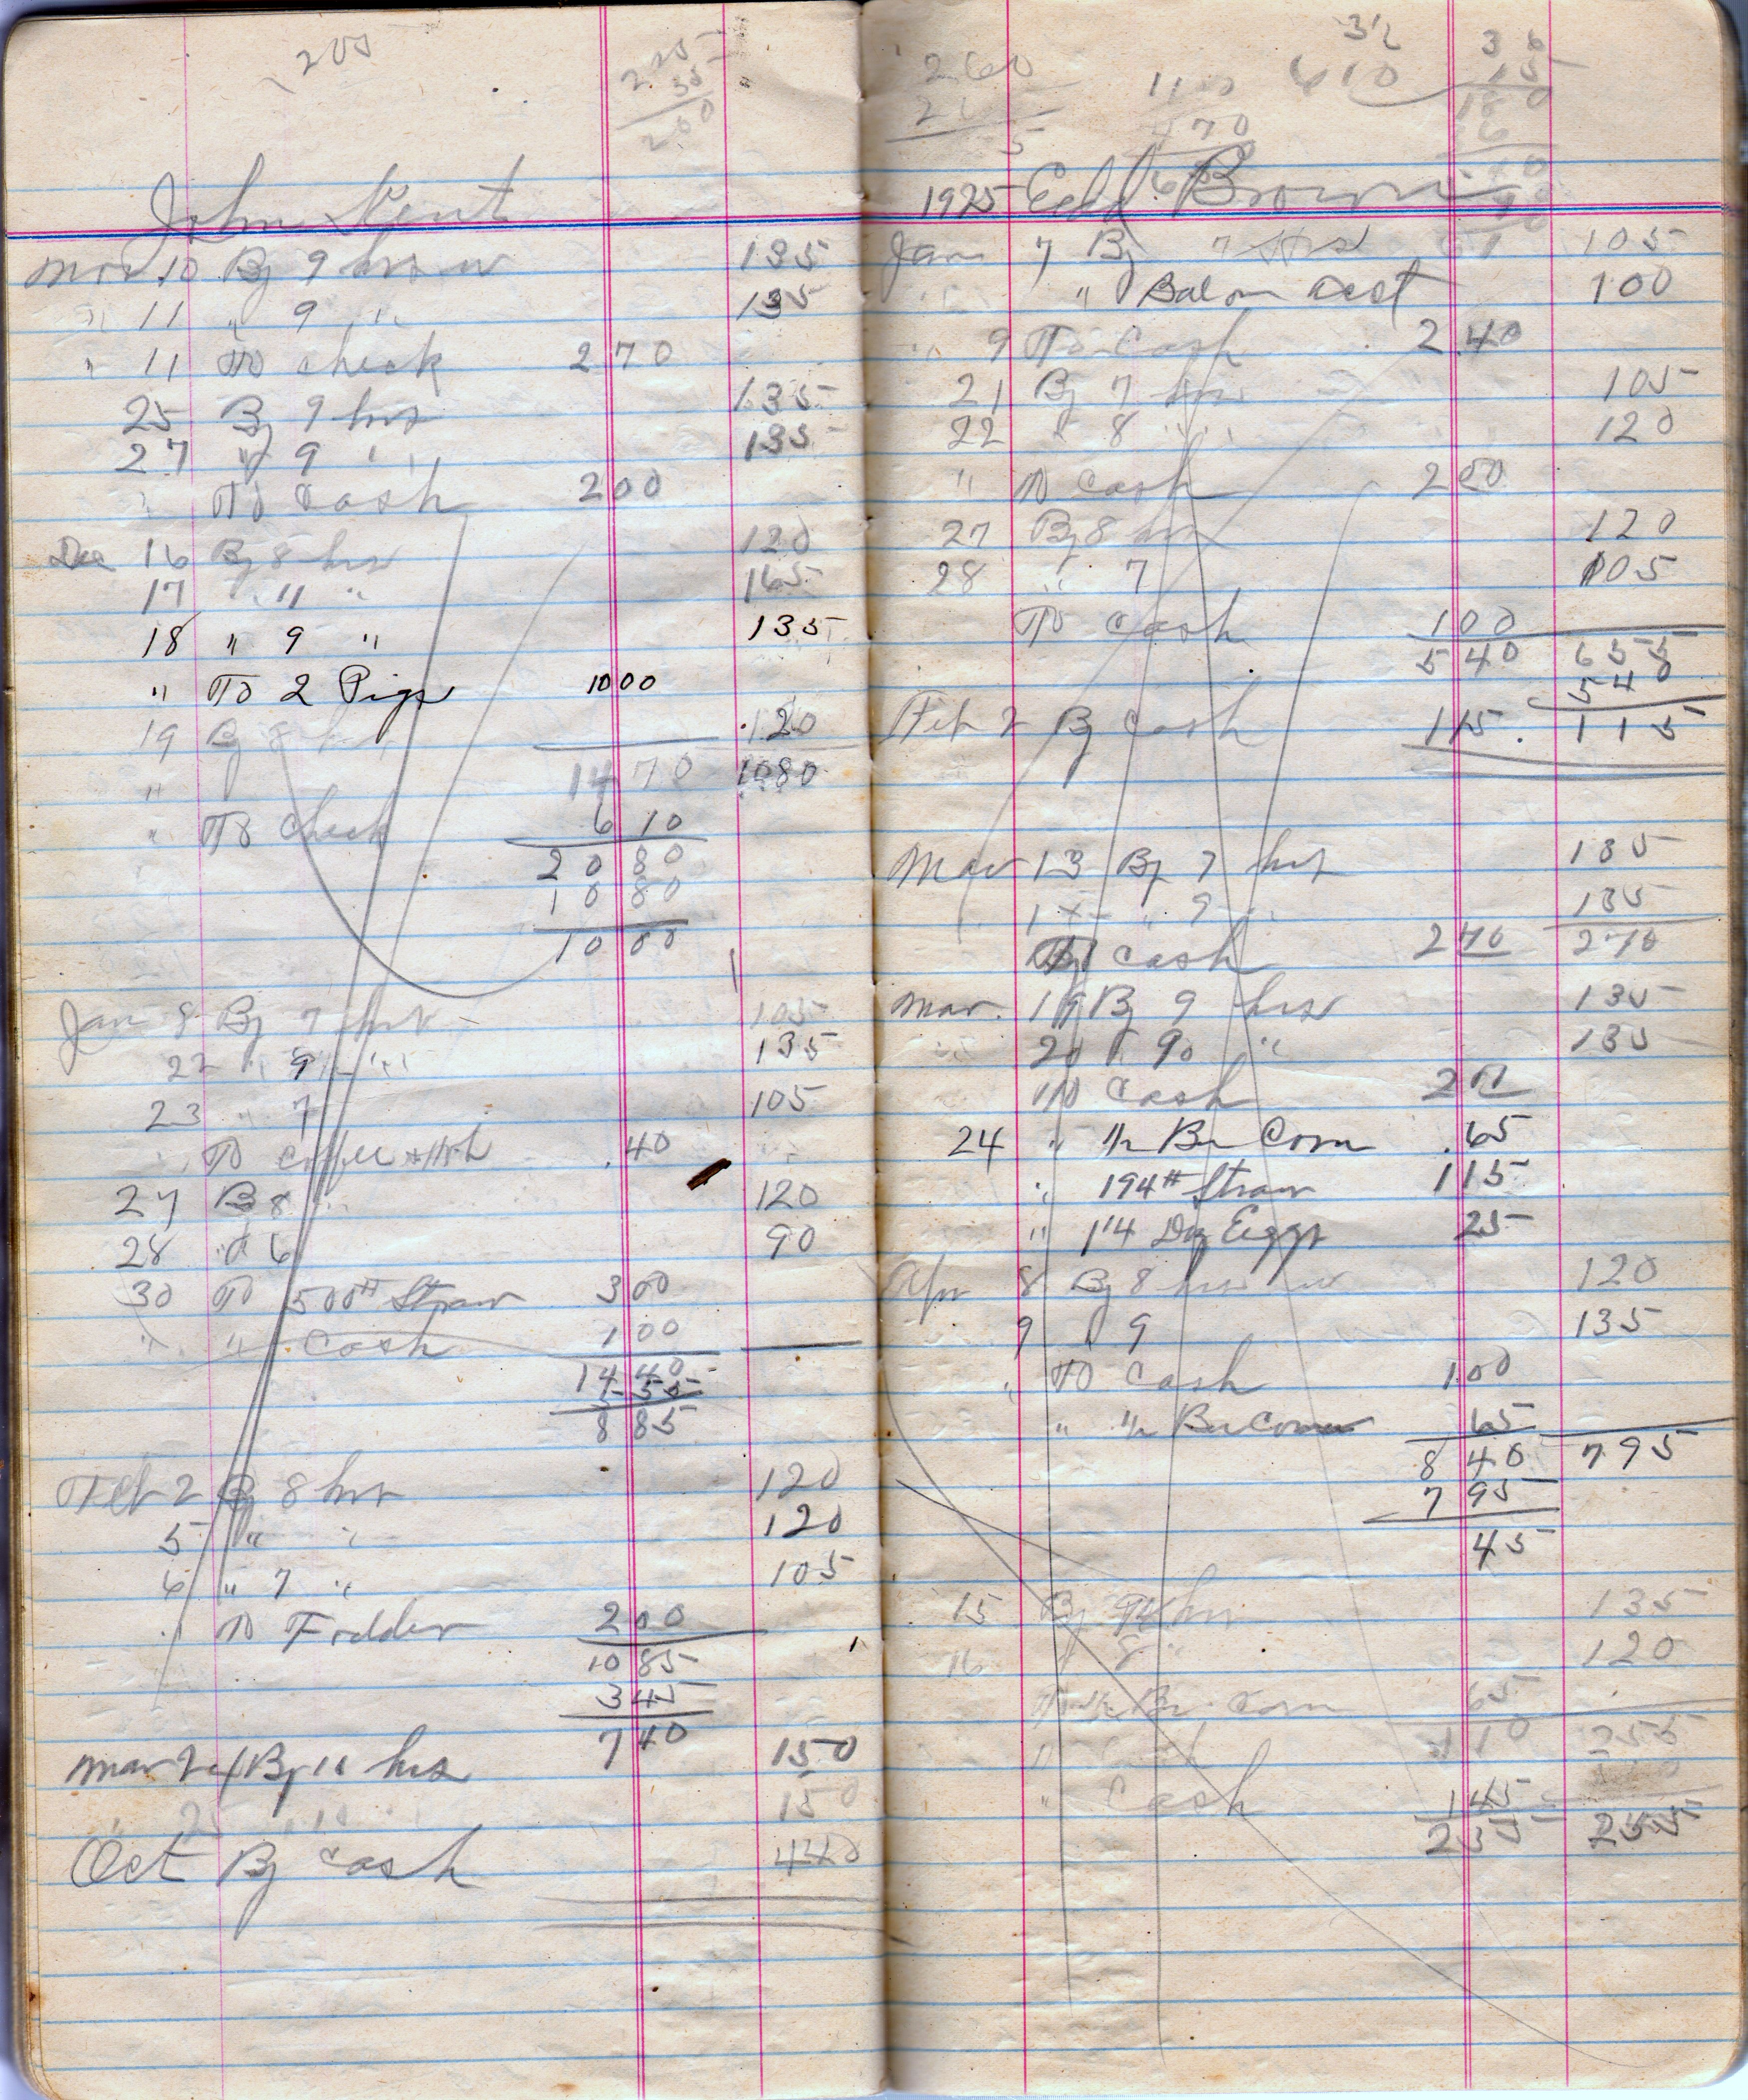 205
225
35
200
John Kent
Mar 10 By 9 hrs w 135
" 11 " 9 " 135
" 11 To check 270
25 By 9 hrs 135
27 " 9 " 135
To Cash 200
Dec 16 By 8 hrs 120
17 " 11 " 165
18 " 9 " 135
" To 2 Pigs 1000
19 By 8 120
" 1470 1080
" To Check 610
2080
1080
1000
Jan 8 By 7 hrs 105
22 " 9 " 135
23 " 7 105
" To coffee .40
27 B 8 120
28 " 6 90
30 To 500# Straw 300
" " Cash 100
1440
555
885
Feb 2 By 8 hrs 120
5 " " 120
6 " 7 " 105
" To Fodder 200
1085
345
740
Mar 24 By 10 hrs 150
" 25 " 10 150
Oct By cash 440
260
5
110
470
32
610
36
15
180
1925 Edd Brown
Jan 7 By 7 Hrs 105
" Bal on acct 100
" 9 To Cash 2.40
21 By 7 hrs 105
22 " 8 " 120
" To Cash 200
27 By 8 hrs 120
28 " 7 105
To Cash 100
540 655
540
Feb 2 By Cash 115. 115
Mar 13 By 7 hrs 135
" 9 " 135
To Cash 270 270
Mar. 19 By 9 hrs 135
20 " 9 " 135
To Cash 200
24 " ½ Bu Corn .65
" 194# Straw 115
" 1 1/4 Dz Eggs 25
Apr 8 By 8 hrs w 120
9 9 135
" To Cash 100
" " ½ Bu Corn 65
840 795
795
45
15 By 9 hrs 135
16 8 " 120
To ½ Bu Corn 65
110 255
" Cash 145
255 255